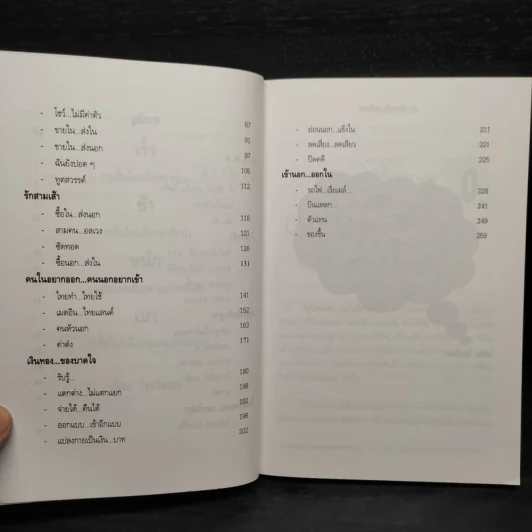 - โชว์...ไม่มีค่าตัว 87
- ขายใน...ส่งใน 91
- ขายใน...ส่งนอก 97
- ฉันยังปอด ๆ 106
- ทูตสวรรค์ 112
รักสามเส้า
- ซื้อใน...ส่งนอก 118
- สามคน...อลเวง 121
- ซัดทอด 126
- ซื้อนอก...ส่งใน 131
คนในอยากออก...คนนอกอยากเข้า
- ไทยทำ...ไทยใช้ 141
- เมดอิน...ไทยแลนด์ 152
- คนหัวนอก 163
- ค่าต๋ง 171
เงินทอง...ของบาดใจ
- รับรู้... 180
- แตกต่าง...ไม่แตกแยก 188
- จ่ายได้...คืนได้ 192
- ออกแบบ...เข้าอีกแบบ 196
- แปลงกายเป็นเงิน...บาท 202
- อ่อนนอก...แข็งใน 211
- ลดเสี่ยง...ลดเสียว 221
- ปิดคดี 225
เข้านอก...ออกใน
- รถไฟ...เรือเมล์ 228
- บินแหลก... 241
- ตัวแทน 249
- ของขึ้น 259